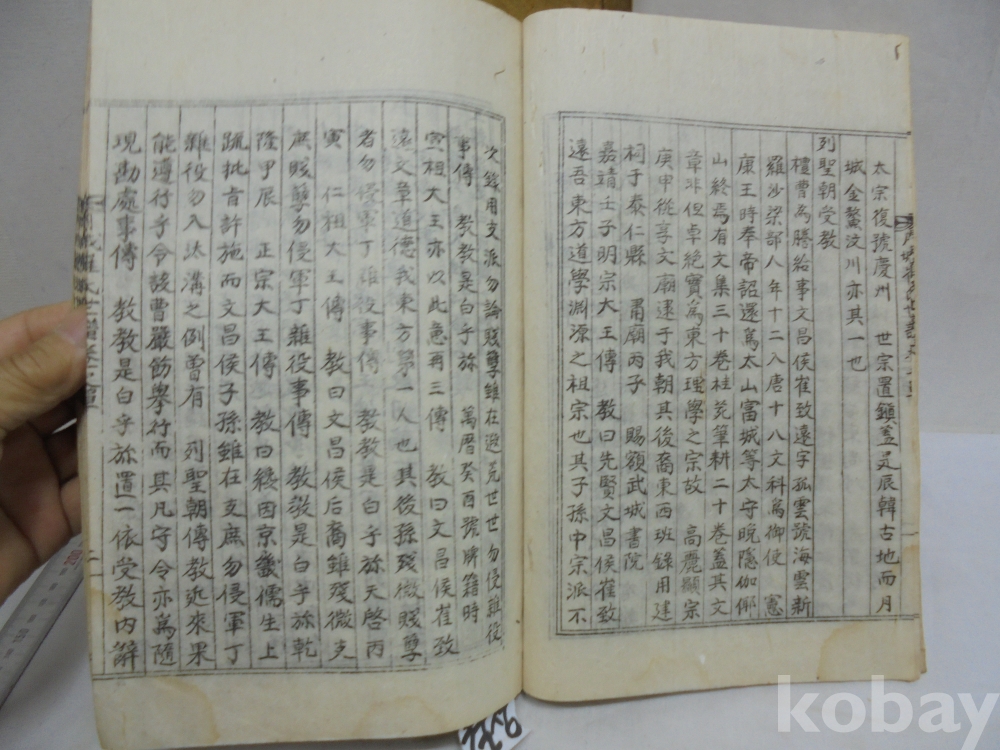 太宗復號慶州 世宗置鎮蓋是辰韓古地而月
城金鰲汶川亦其一也
列聖朝受教
禮曹為謄給事文昌侯崔致遠字孤雲號海雲新
羅沙梁部八年十二入唐十八文科為御使 憲
康王時奉帝詔還為太山富城等太守晩隱伽倻
山終焉有文集三十卷桂苑筆耕二十卷蓋其文
章非但卓絶實為東方理學之宗故 高麗顯宗
庚申從享文廟逮于我朝其後裔東西班錄用建
祠于泰仁縣 肅廟丙子 賜額武城書院
嘉靖壬子明宗大王傳 教曰先賢文昌侯崔致
遠吾東方道學淵源之祖宗也其子孫中宗派不
次錄用支派勿論賤孽雖在遐荒世世勿侵雜役
事傳 教教是白乎旀 萬曆癸酉號牌籍時
宣祖大王亦以此意再三傳 教曰文昌侯崔致
遠文章道德我東方第一人也其後孫殘微賤孽
者勿侵軍丁雜役事傳 教教是白乎旀天啓丙
寅 仁祖大王傳 教曰文昌侯后裔雖殘微支
庶賤孽勿侵軍丁雜役事傳 教教是白乎旀乾
隆甲辰 正宗大王傳 教曰纔因京畿儒生上
疏批旨許施而文昌侯子孫雖在支庶勿侵軍丁
雜役勿入汰溝之例曾有 列聖朝傳教近來果
能遵行乎令該曹嚴飭擧行而其凡守令亦為隨
現勘處事傳 教教是白乎旀置一依受教內辭
kobay